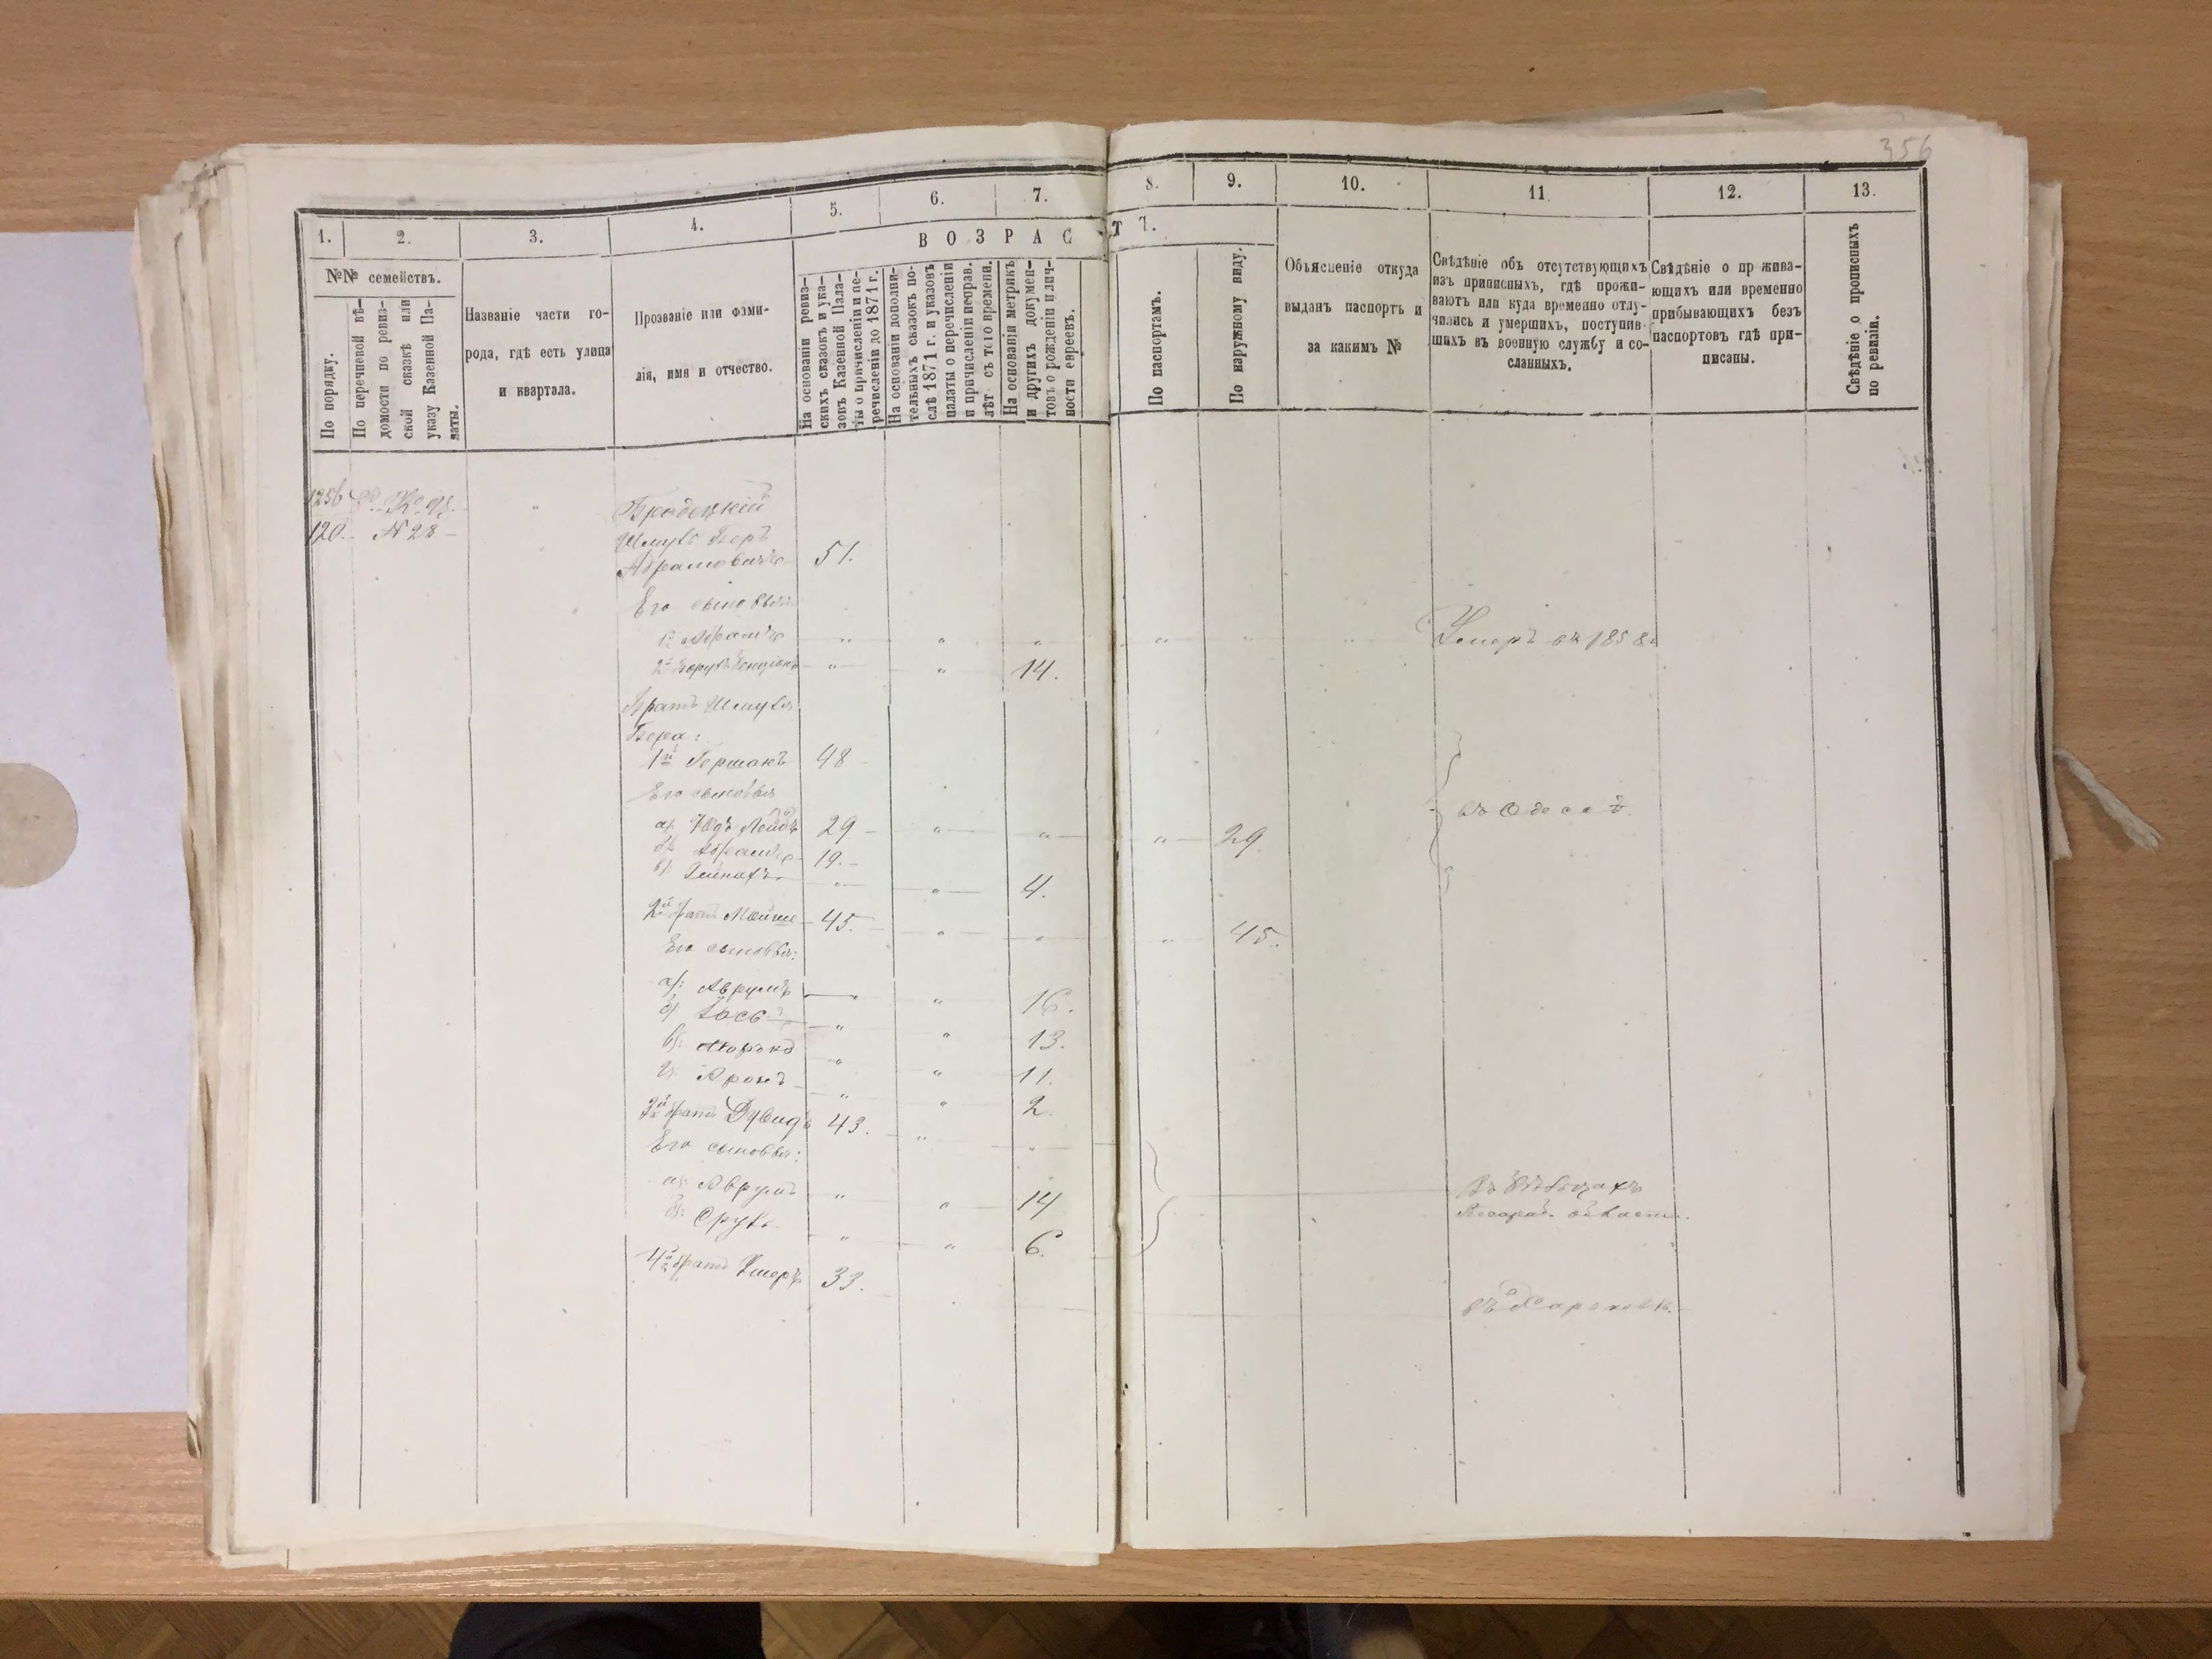 356
1.
2.
3.
4.
5.
6.
7.
8.
9.
10.
11
12.
13.
№№ семействъ.
По порядку.
По перечневой вѣ-
домости по ревиз-
ской сказкѣ или
указу Казенной Па-
латы.
Названіе части го-
рода, гдѣ есть улица
и квартала.
Прозваніе или фами-
лія, имя и отчество.
ВОЗРАС
Т 7.
На основаніи ревиз-
скихъ сказокъ и ука-
зовъ Казенной Пала-
ты о причисленіи и пе-
речисленіи до 1871 г.
На основаніи дополни-
тельныхъ сказокъ по-
слѣ 1871 г. и указовъ
палаты о перечисленіи
и причисленіи исправ.
лѣт съ того времени.
На основаніи метрикъ
и другихъ докумен-
товъ о рожденіи и лич-
ности евреевъ.
По паспортамъ.
По наружному виду.
Объясненіе откуда
выданъ паспортъ и
за какимъ №
Свѣдѣніе объ отсутствующихъ
изъ приписныхъ, гдѣ прожи-
ваютъ или куда временно отлу-
чились и умершихъ, поступив-
шихъ въ военную службу и со-
сланныхъ.
Свѣдѣніе о пр жива-
ющихъ или временно
прибывающихъ безъ
паспортовъ гдѣ при-
писаны.
Свѣдѣніе о прописныхъ
по ревизіи.
1256
120. № 28
Бродецкій
Шмуль Беръ
Абрамовичъ 51.
Его сыновья
1й Абрамъ " " " " " " Умеръ въ 1858 г.
2й " " 14.
Братъ Шмуля
Бера:
1й Гершонъ 48
Его сыновья
а) Юдъ Лейбъ 29 " " " 29
въ Одессѣ.
б) Абрамъ 19.
в) " " 4.
2й братъ Мойше 45. " " " 45.
Его сыновья:
а): Аврумъ " " 16.
б) Іось " " 13.
в): " " 11.
г) Аронъ " " 2
3й братъ Дувидъ 43. " "
Его сыновья:
а): Аврумъ " " 14
Въ Бѣльцахъ
Бессараб. области.
б): Сруль " " 6.
4й братъ Ушеръ 33.
въ Харьковѣ.